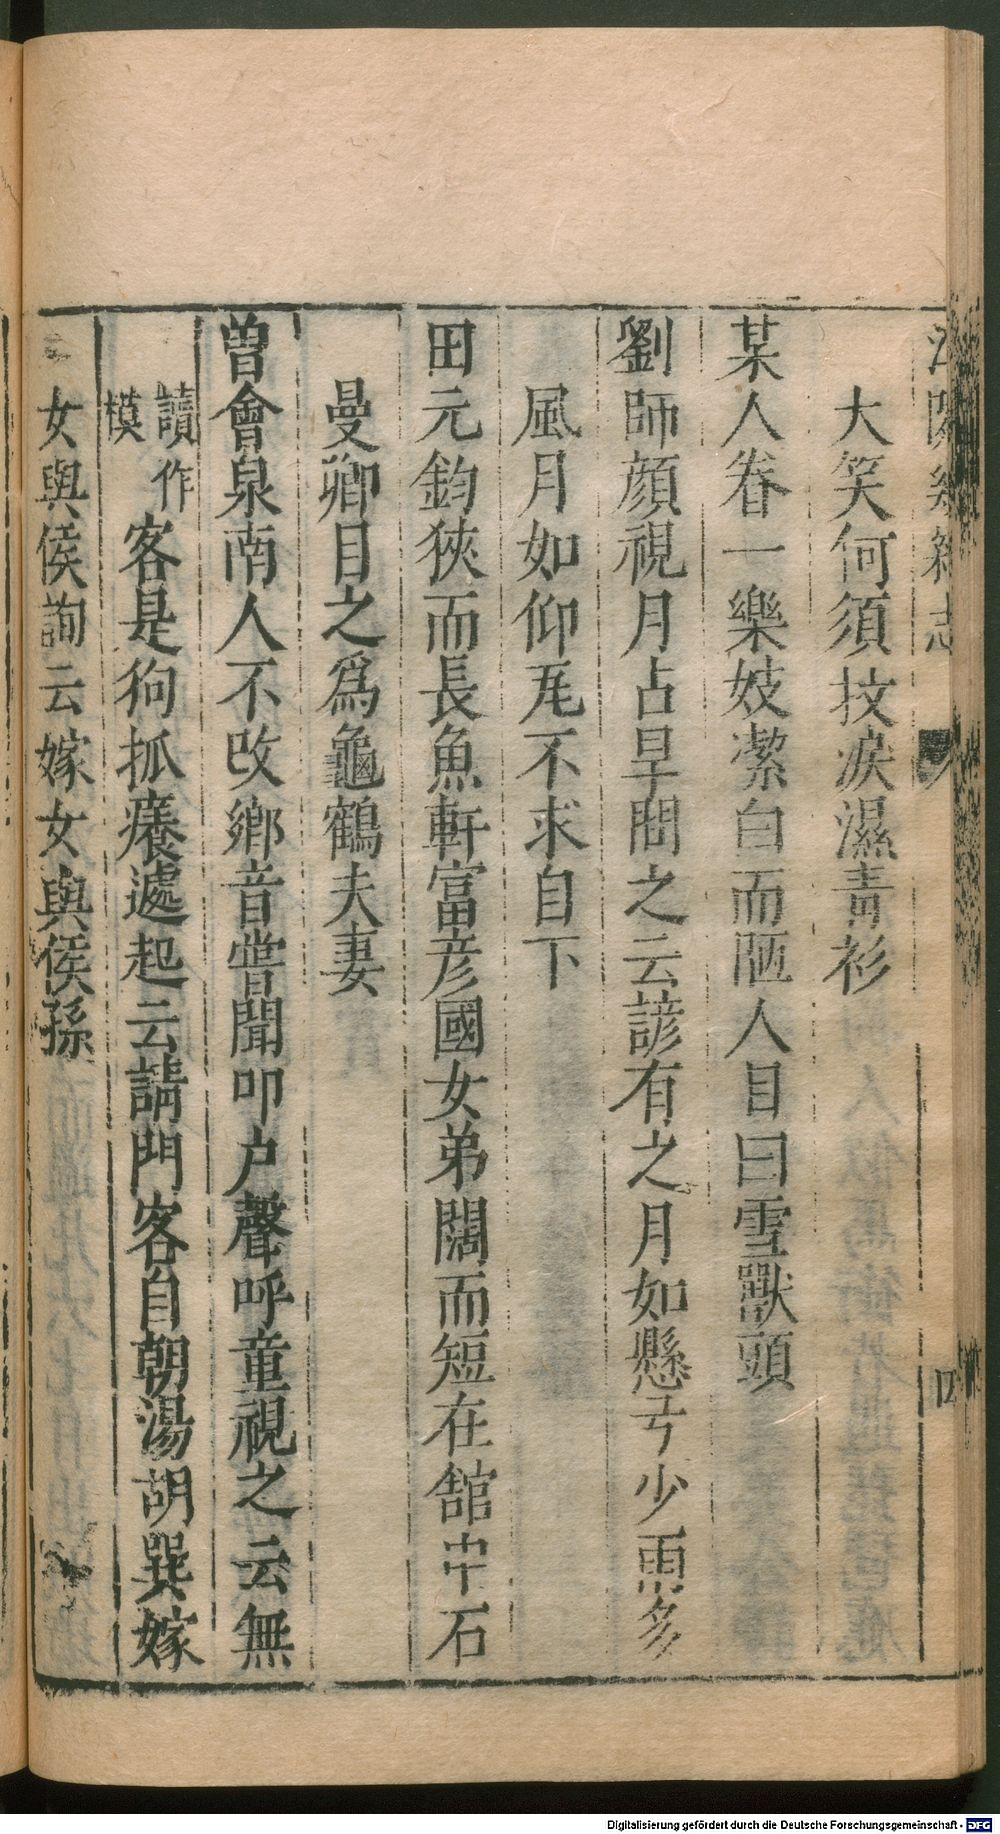 大笑何須抆淚濕青衫
某人眷一樂妓潔白而陋人目曰雪獸頭
劉師顔視月占旱問之云諺有之月如懸弓少雨多
風月如仰瓦不求自下
田元鈞狹而長魚軒富彦國女弟闊而短在館中石
曼卿目之爲龜鶴夫妻
曾會泉南人不改鄉音嘗聞叩户聲呼童視之云無
讀作模客是狗抓癢處起云請門客自朝湯胡巽嫁
女與侯詢云嫁女與侯孫
志
四
Digitalisierung gefördert durch die Deutsche Forschungsgemeinschaft - DFG